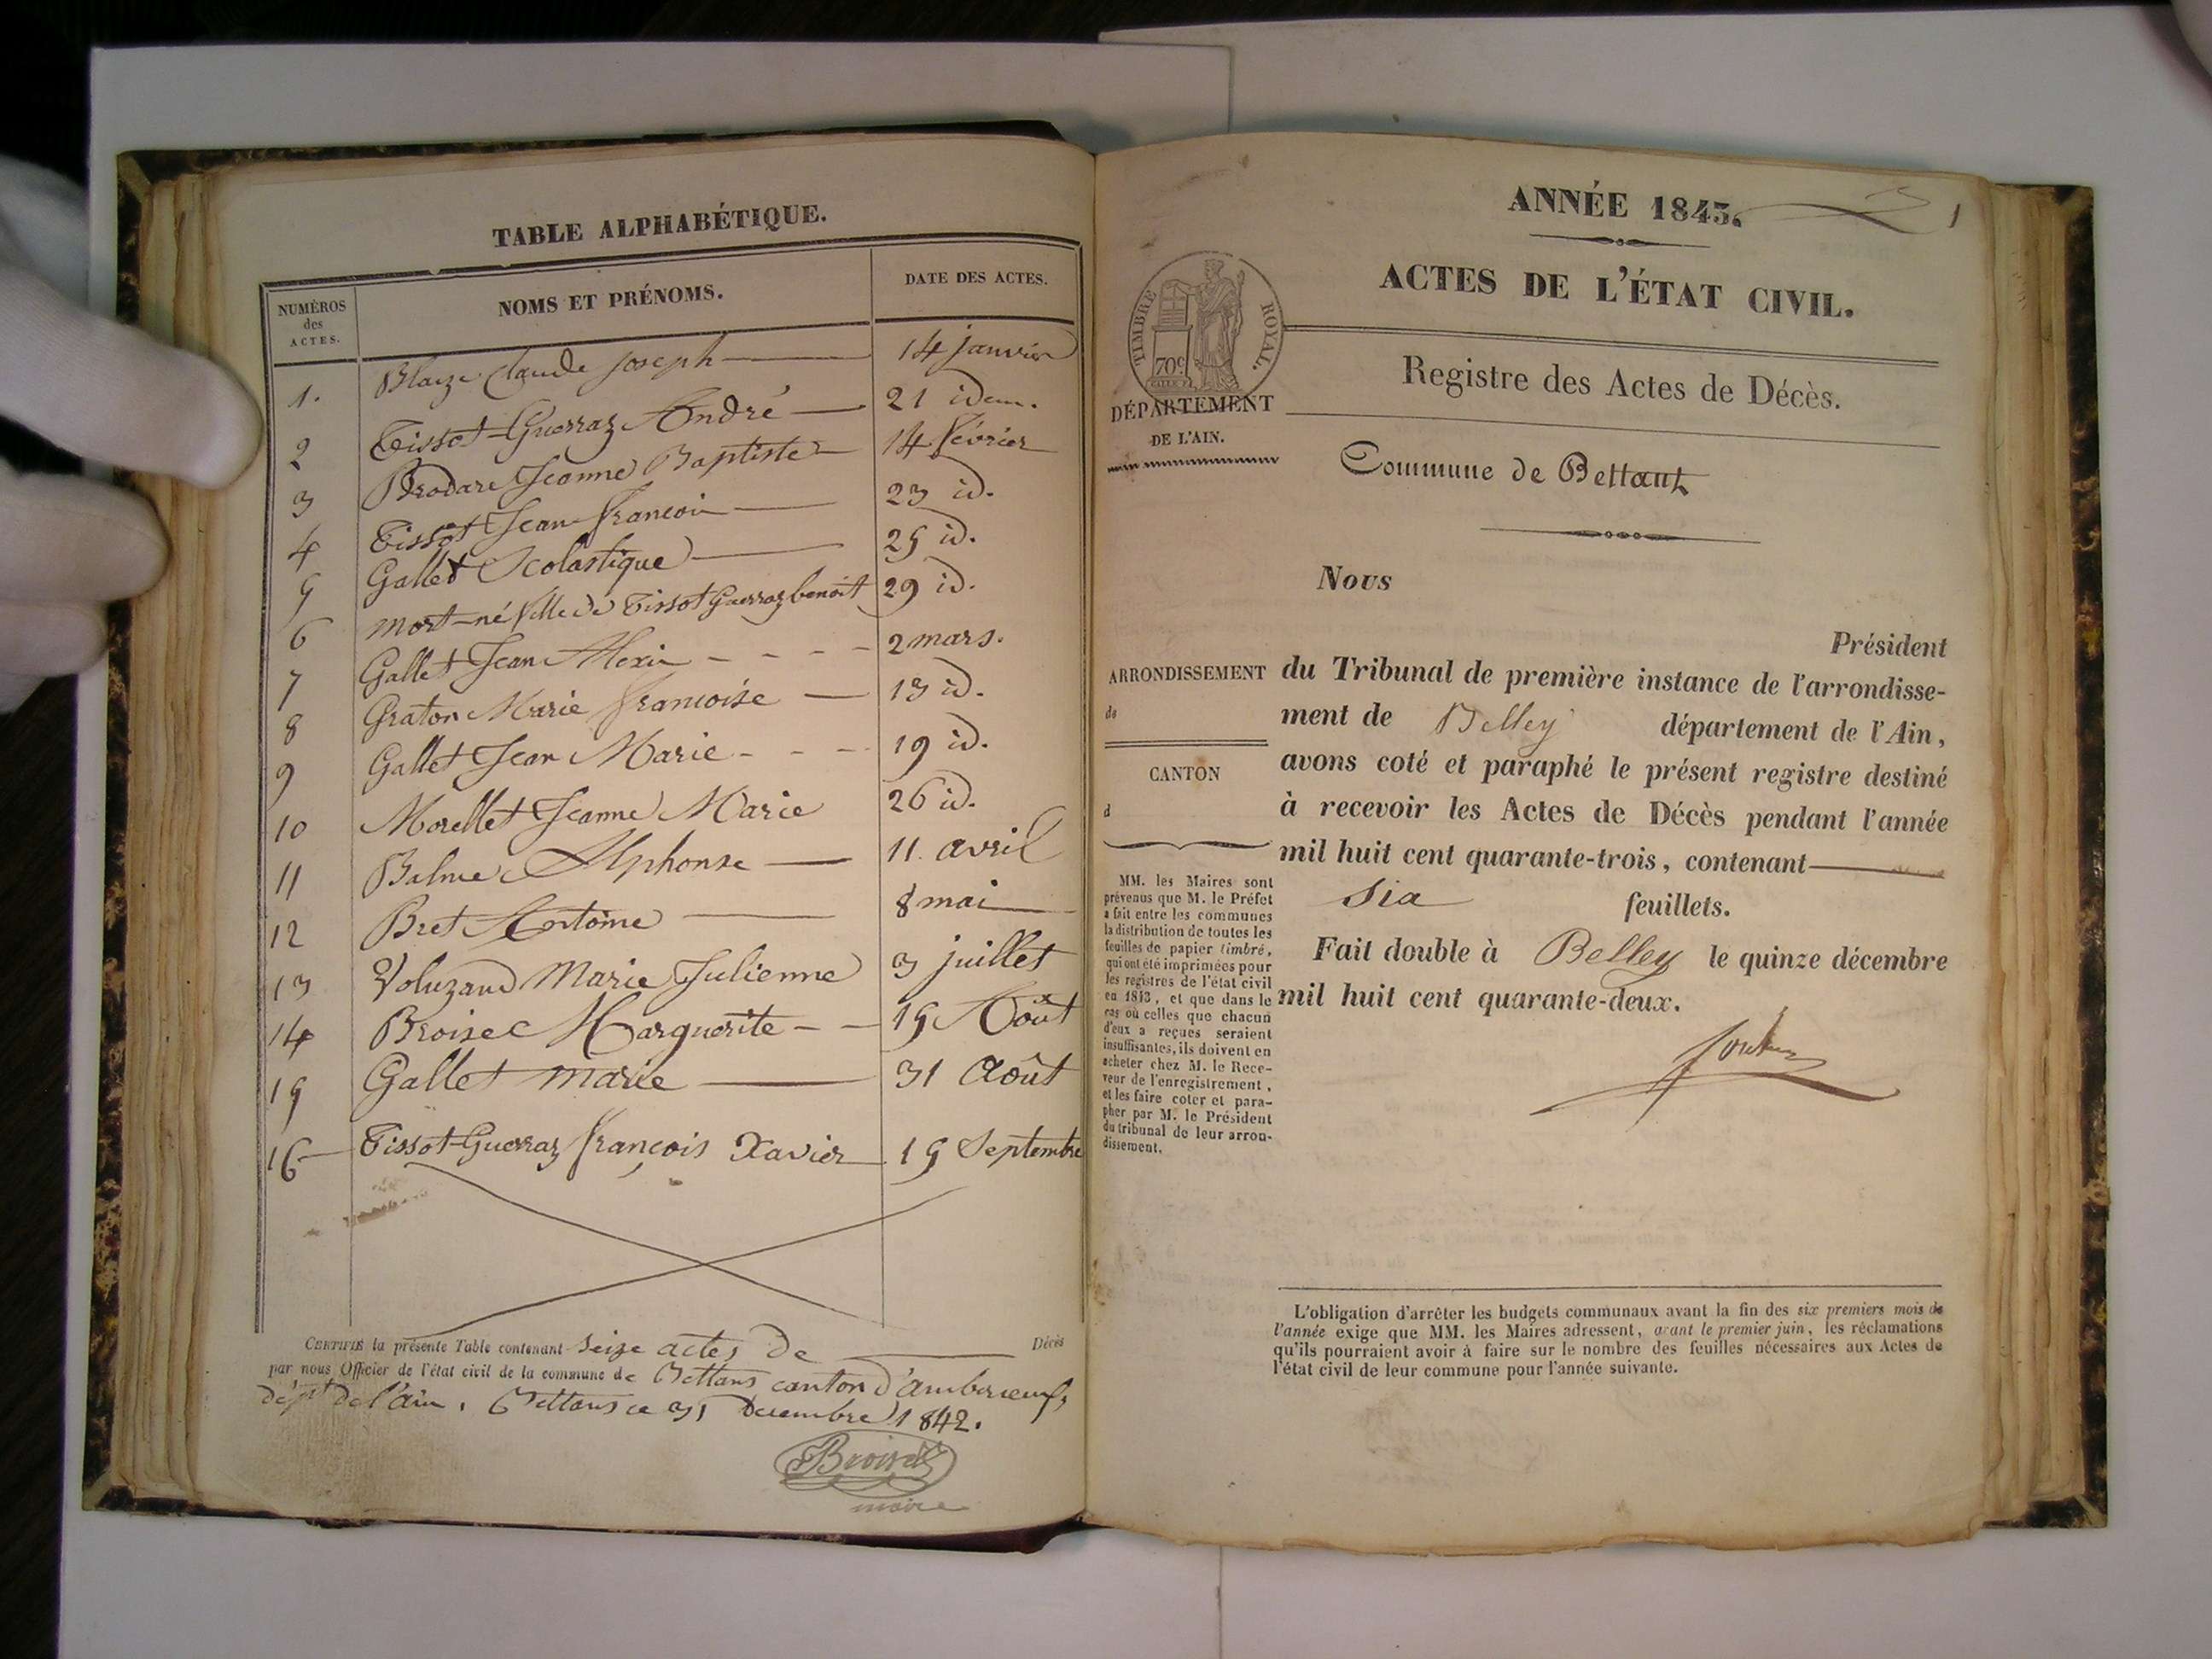 TABLE ALPHABÉTIQUE.
NUMÉROS des ACTES.
NOMS ET PRÉNOMS.
DATE DES ACTES.
1. Blaize Claude Joseph 14 janvier
2 Tissot-Guerraz André 21 idem.
3 Brodare Jeanne Baptiste 14 février
4 Tissot Jean françois 23 id.
5 Gallet Scolastique 25 id.
6 mort-né fille de Tissot Guerraz benoit 29 id.
7 Gallet Jean Alexis 2 mars.
8 Graton Marie françoise 13 id.
9 Gallet Jean Marie 19 id.
10 Morellet Jeanne Marie 26 id.
11 Balme Alphonse 11 avril
12 Bret Antoine 8 mai
13 Voluzand Marie Julienne 3 juillet
14 Broisec Marguerite 15 Août
15 Gallet marie 31 Août
16 Tissot-Guerraz françois Xavier 15 Septembre
CERTIFIÉ la présente Table contenant seize actes de Décès
par nous Officier de l'état civil de la commune de Bettans canton d'amberieux,
dépt de l'ain. Bettans ce 31 Decembre 1842.
Broisat
maire
ANNÉE 1843.
1
ACTES DE L'ÉTAT CIVIL.
TIMBRE ROYAL.
70c
Registre des Actes de Décès.
DÉPARTEMENT
DE L'AIN.
Commune de Bettant
Nous
Président
ARRONDISSEMENT
de
CANTON
d
du Tribunal de première instance de l'arrondisse-
ment de Belley département de l'Ain,
avons coté et paraphé le présent registre destiné
à recevoir les Actes de Décès pendant l'année
mil huit cent quarante-trois, contenant
six feuillets.
Fait double à Belley le quinze décembre
mil huit cent quarante-deux.
MM. les Maires sont
prévenus que M. le Préfet
a fait entre les communes
la distribution de toutes les
feuilles de papier timbré,
qui ont été imprimées pour
les registres de l'état civil
en 1843, et que dans le
cas où celles que chacun
d'eux a reçues seraient
insuffisantes, ils doivent en
acheter chez M. le Rece-
veur de l'enregistrement,
et les faire coter et para-
pher par M. le Président
du tribunal de leur arron-
dissement.
L'obligation d'arrêter les budgets communaux avant la fin des six premiers mois de
l'année exige que MM. les Maires adressent, avant le premier juin, les réclamations
qu'ils pourraient avoir à faire sur le nombre des feuilles nécessaires aux Actes de
l'état civil de leur commune pour l'année suivante.